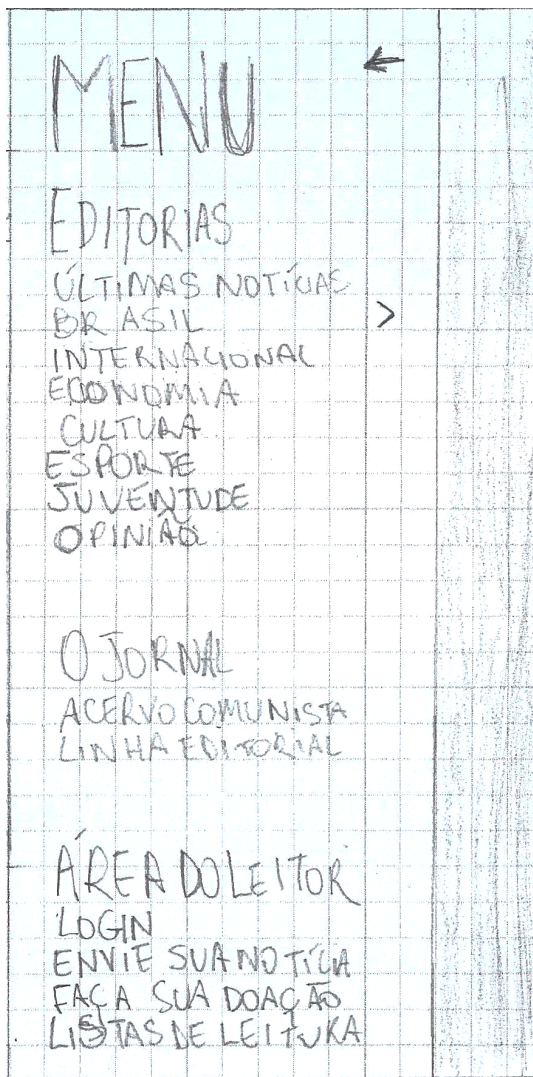 MENU
EDITORIAS
ÚLTIMAS NOTÍCIAS
BRASIL >
INTERNACIONAL
ECONOMIA
CULTURA
ESPORTE
JUVENTUDE
OPINIÃO
O JORNAL
ACERVO COMUNISTA
LINHA EDITORIAL
ÁREA DO LEITOR
LOGIN
ENVIE SUA NOTÍCIA
FAÇA SUA DOAÇÃO
LISTAS DE LEITURA